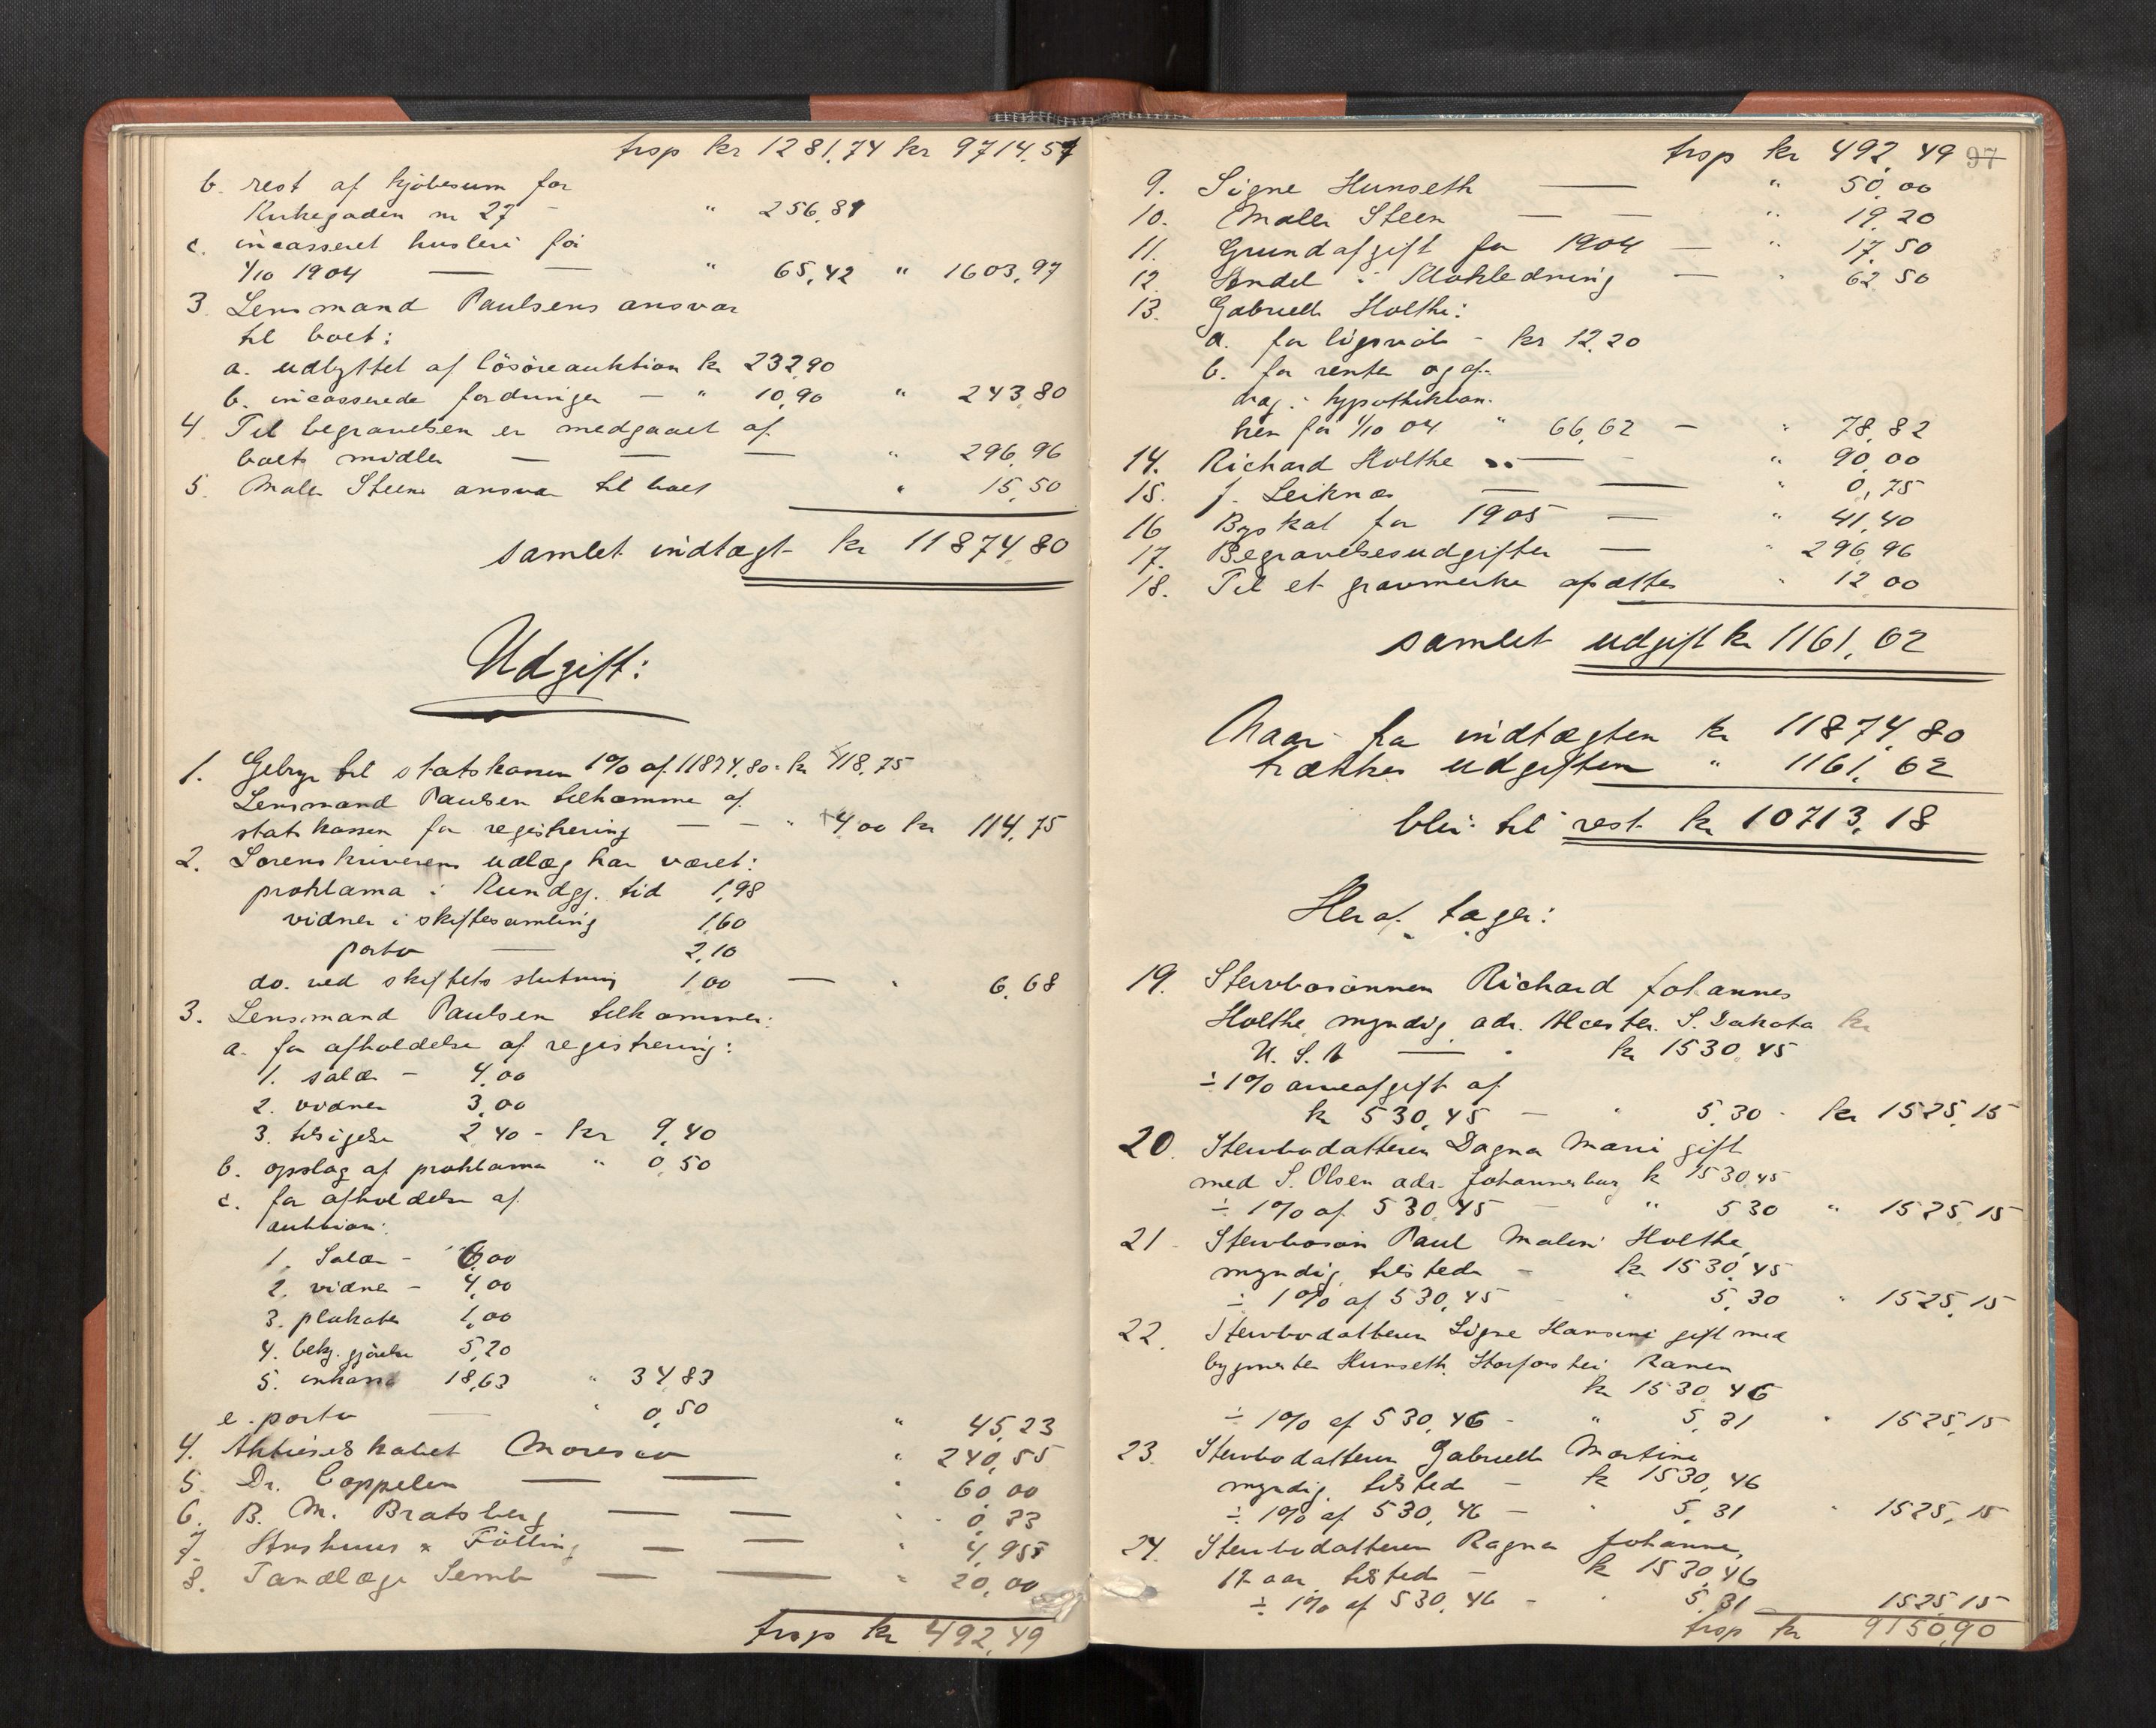 trsp kr 1281,74 kr 9714,57
b. rest af kjöbesum for
Kirkegaden nr 27 - " 256,81
c. incasseret husleie for
1/10 1904 — — " 65,42 " 1603,97
3. Lensmand Paulsens ansvar
til boet:
a. udbyttet af lösöreauktion kr 232,90
b. incasserede fordringer - " 10,90 " 243,80
4. Til begravelsen er medgaaet af
boets midler — — — " 296,96
5. Maler Steens ansvar til boet " 15,50
samlet indtægt kr 11874,80
Udgift:
1. Gebyr til statskassen 1% af 11874,80 - kr 118,75
Lensmand Paulsen tilkomme af
statskassen for registrering — - " 4,00 kr 114,75
2. Sorenskriverens udlæg har været:
proklama i Kundgj. tid 1,98
vidner i skiftesamling 1,60
porto — 2,10
do. ved skiftets slutning 1,00 — " 6,68
3. Lensmand Paulsen tilkommer:
a. for afholdelse af registrering:
1. salær - 4,00
2. vidner 3,00
3. tilsigelse 2,40 - kr 9,40
b. opslag af proklama " 0,50
c. for afholdelse af
auktion:
1. Salær - 6,00
2. vidner - 4,00
3. plakater 1,00
4. bekj.gjörelse 5,20
5. inkasso 18,63 " 34,83
e. porto — " 0,50 " 45,23
4. Aktieselskabet Moresco " 240,55
5. Dr. Coppelen — — " 60,00
6. B. M. Bratsberg — — " 0,33
7. & Fölling — — " 4,955
8. Tandlæge Semb — — " 20,00
trsp kr 492,49
trsp kr 492,49 97
9. Signe Hunseth — " 50,00
10. Maler Steen — — " 19,20
11. Grundafgift for 1904 — " 17,50
12. Andel i Kloakledning — " 62,50
13. Gabrielle Holthe:
a. for - kr 12,20
b. for renter og af-
drag i hypothekban-
ken for 1/10 04 " 66,62 - " 78,82
14. Richard Holthe — - " 90,00
15. J. Leiknes — — " 0,75
16. Byskat for 1905 — " 41,40
17. Begravelsesudgifter — " 296,96
18. Til et gravmerke afsættes " 12,00
samlet udgift kr 1161,62
Naar fra indtægten kr 11874,80
trækkes udgiften " 1161,62
blir til rest kr 10713,18
Heraf tager:
19. Stervbosönnen Richard Johannes
Holthe, myndig, adr. Alcester. S. Dakota kr
U. S. A — " kr 1530,45
÷ 1% arveafgift af
kr 530,45 - " 5,30 - kr 1525,15
20. Stervbodatteren Dagna Marie gift
med S. Olsen adr. Johannesburg kr 1530,45
÷ 1% af 530,45 - " 530 " 1525,15
21. Stervbosön Paul Malini Holthe,
myndig, tilstede - kr 1530,45
÷ 1% af 530,45 - " 5,30 " 1525,15
22. Stervbodatteren Signe Hansine gift med
bygmester Hunseth, Storforshei Ranen
kr 1530,46
÷ 1% af 530,46 - " 5,31 " 1525,15
23. Stervbodatteren Gabrielle Martine
myndig, tilstede - kr 1530,46
÷ 1% af 530,46 - " 5,31 " 1525,15
24. Stervbodatteren Ragna Johanne,
17 aar, tilstede - kr 1530,46
÷ 1% af 530,46 - " 5,31 1525,15
trsp kr 9150,90